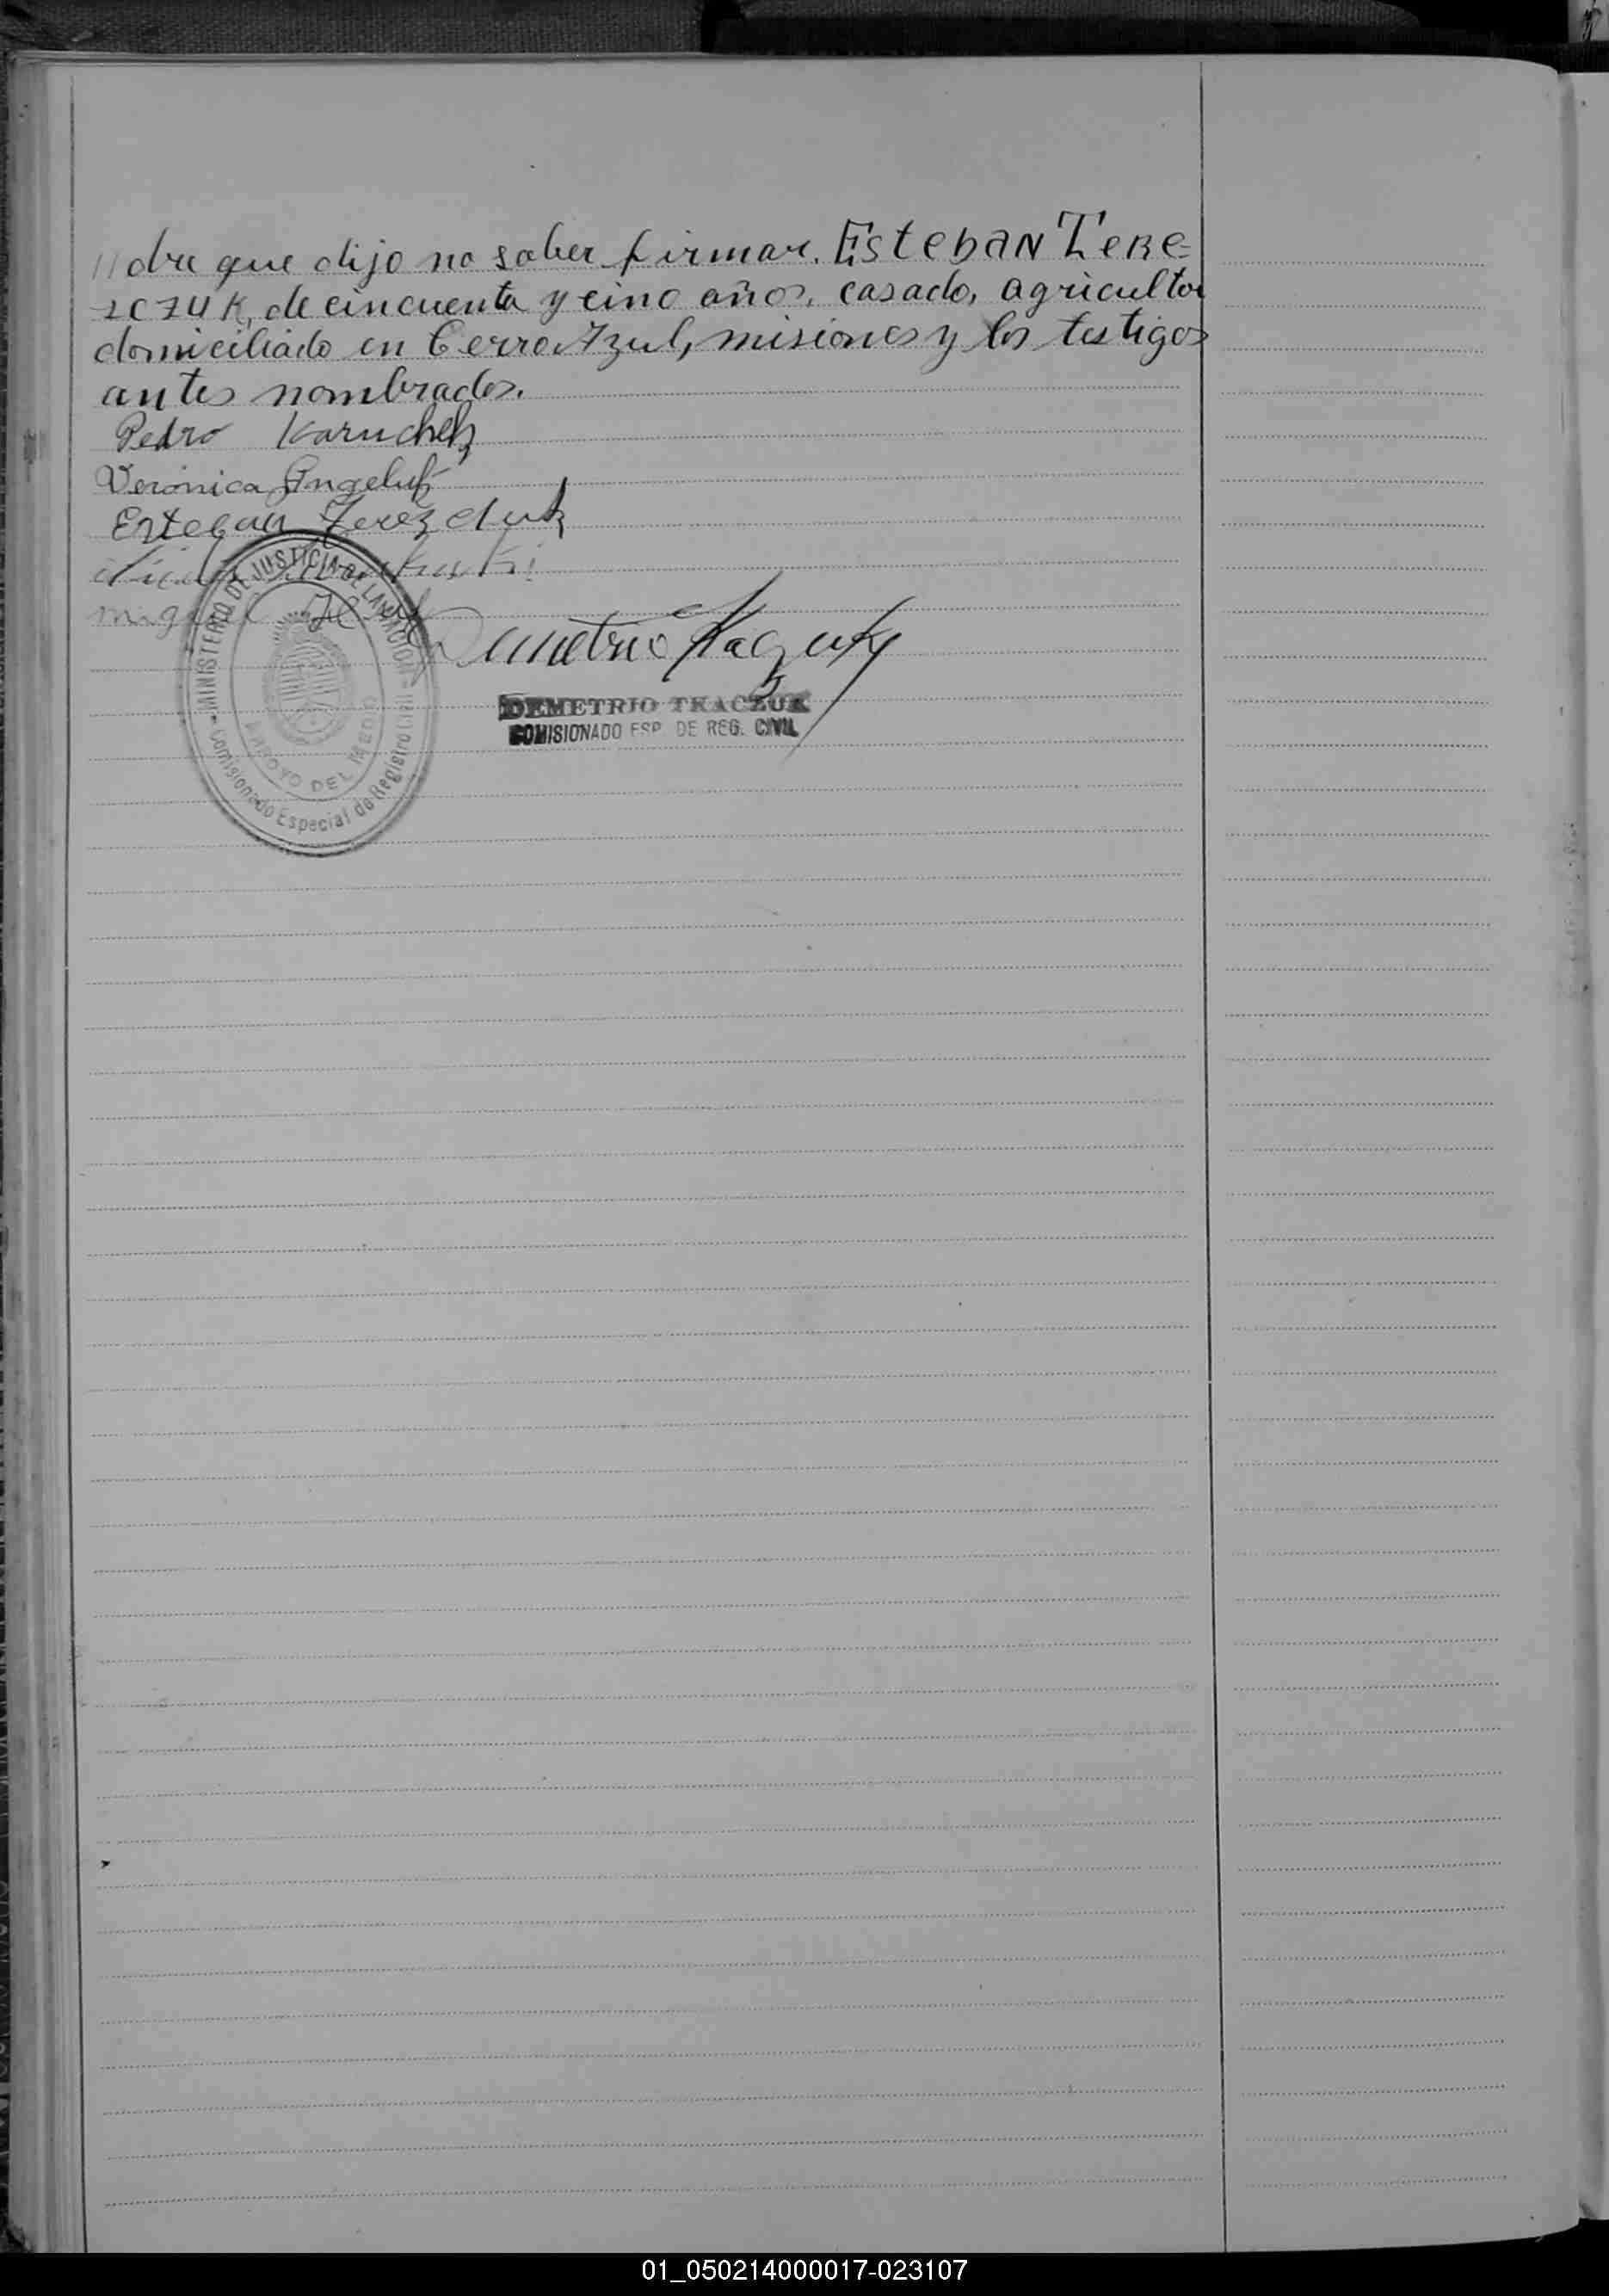 //dre que dijo no saber firmar. Esteban Tere-
szczuk, de cincuenta y cinco años, casado, agricultor
domiciliado en Cerro Azul, misiones y los testigos
antes nombrados.
Pedro
Veronica
Esteban
MINISTERIO DE JUSTICIA DE LA NACION
Comisionado Especial de Registro Civil
ARROYO DEL MEDIO
Demetrio Tkaczuk
DEMETRIO TKACZUK
COMISIONADO ESP. DE REG. CIVIL
01_050214000017-023107